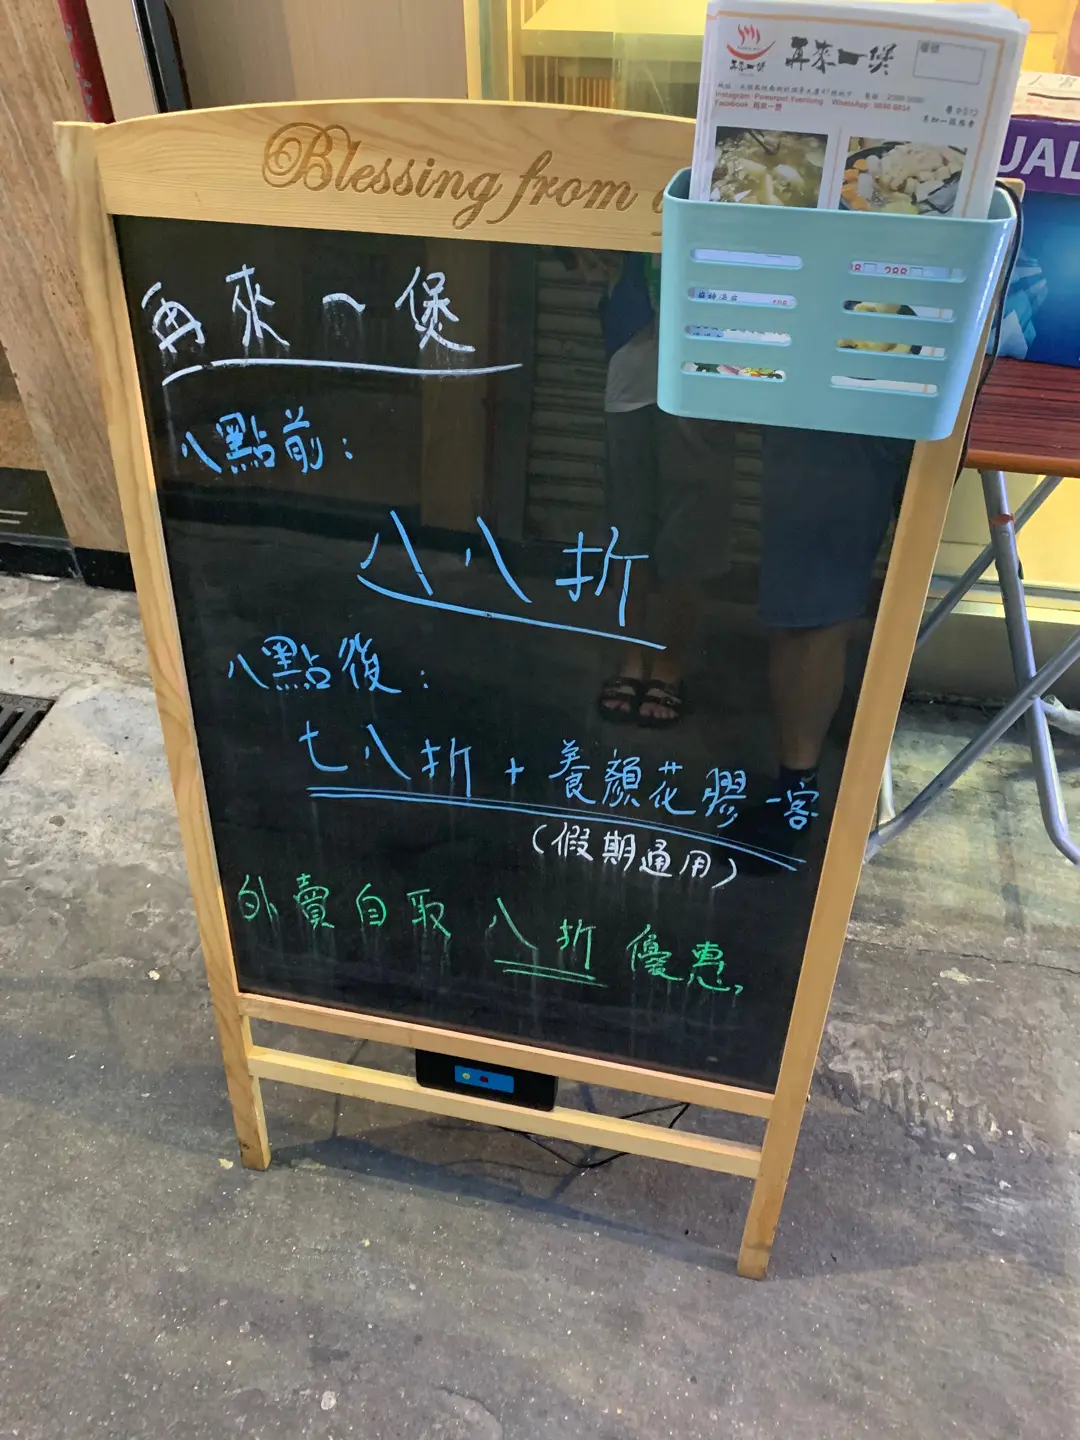 Blessing from
再來一煲
八點前：
八八折
八點後：
七八折 + 養顏花膠一客
(假期通用)
外賣自取八折優惠,
再來一煲
再來一煲
Instagram: Powerpot Yuenlong
Facebook: 再來一煲
288
UAL